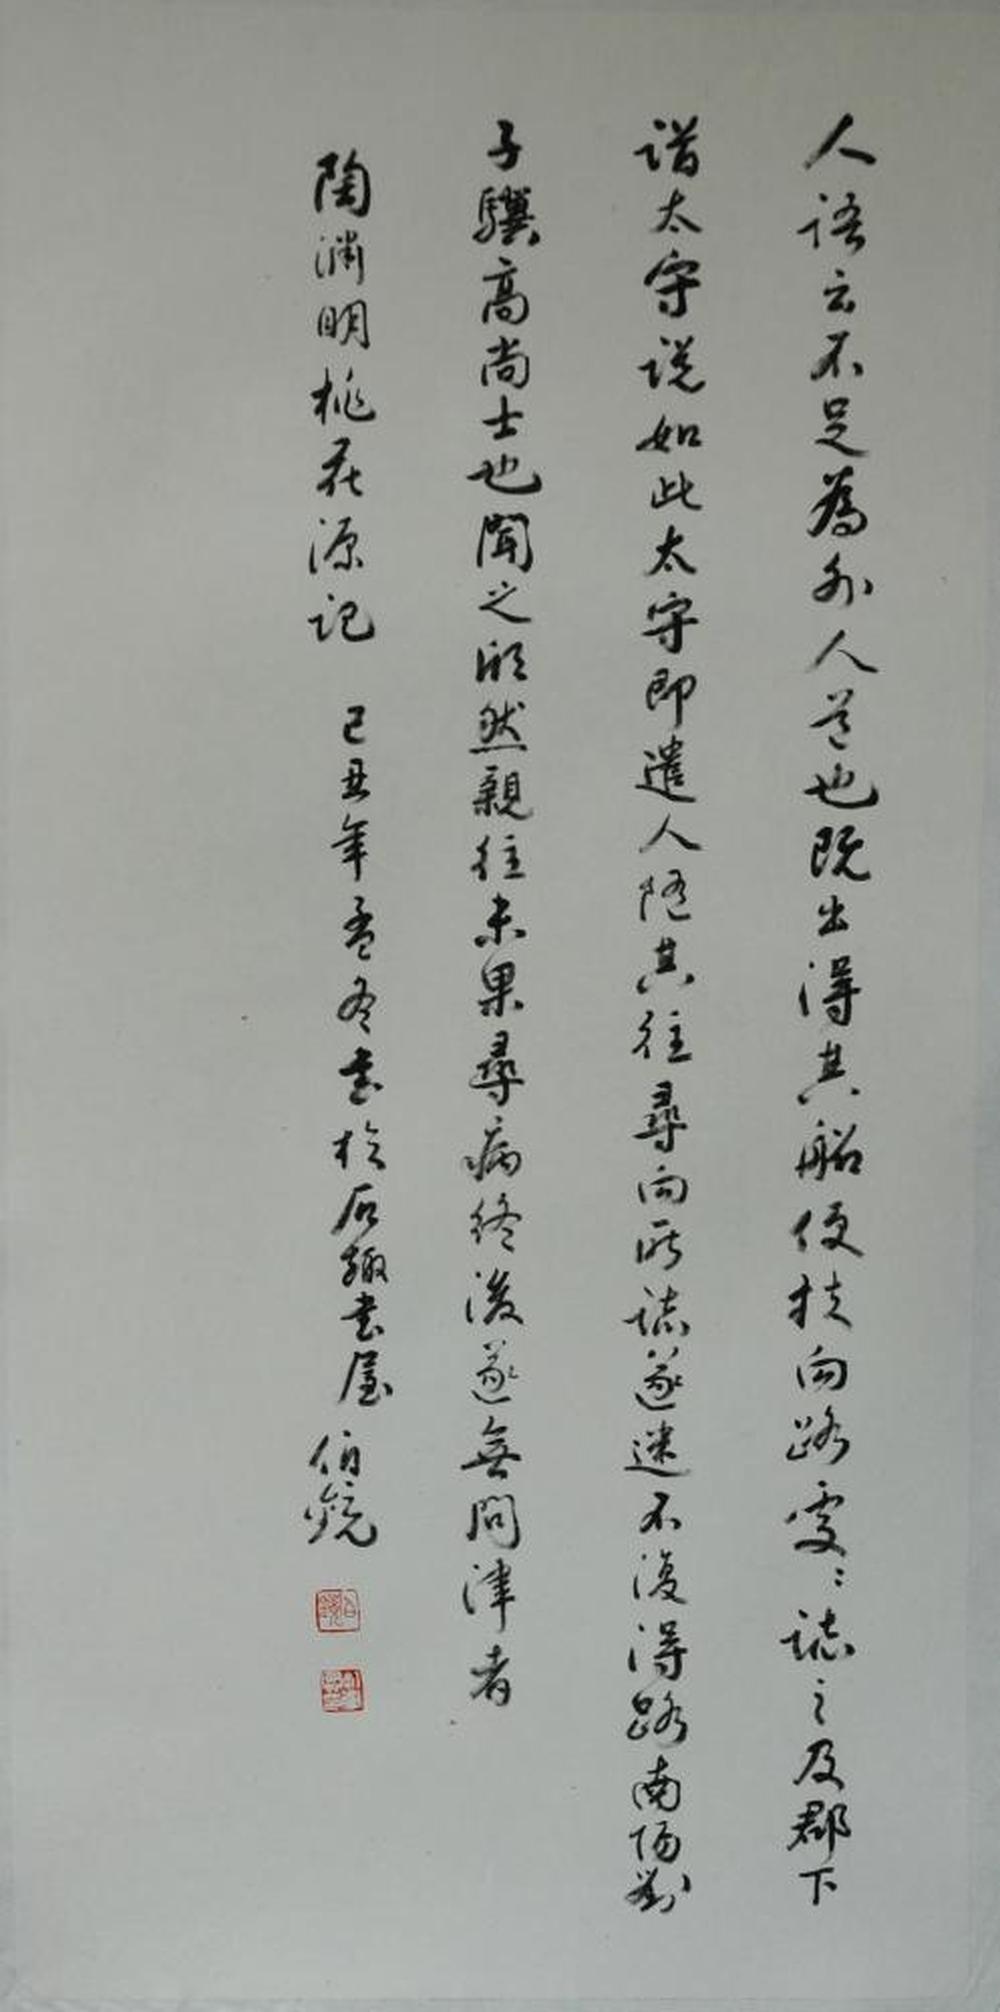 人語云不足為外人道也既出得其船便扶向路處〻誌之及郡下
詣太守說如此太守即遣人隨其往尋向所誌遂迷不復得路南陽劉
子驥高尚士也聞之欣然親往未果尋病終後遂無問津者
陶淵明桃花源記 己丑年孟冬書於石趣書屋 伯